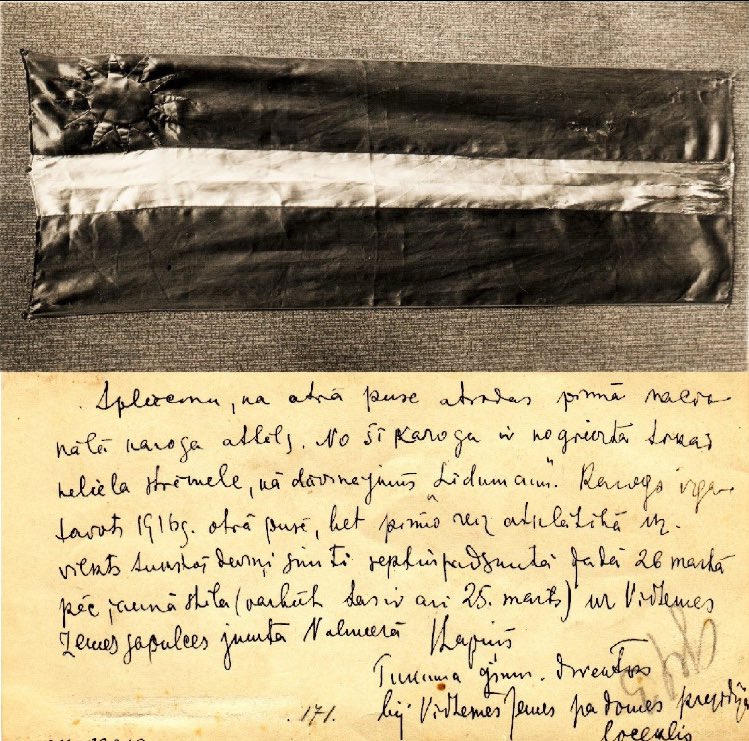 Apliecinu, ka otrā pusē atrodas pirmā nacio-
nālā karoga attēls. No šī karoga ir nogriezta
neliela strēmele, kā dāvinājums
Karogs izga-
tavots 1916g. otrā pusē, bet pirmo reiz atklātībā uz-
vilkts tūkstoš deviņi simti septiņpadsmitā gadā 26 martā
pēc jaunā stila (varbūt tas ir arī 25. marts) uz Vidzemes
Zemes sapulces jumta Valmierā
Tukuma ģimn. direktors
171.
bij. Vidzemes Zemes padomes prezidija
loceklis